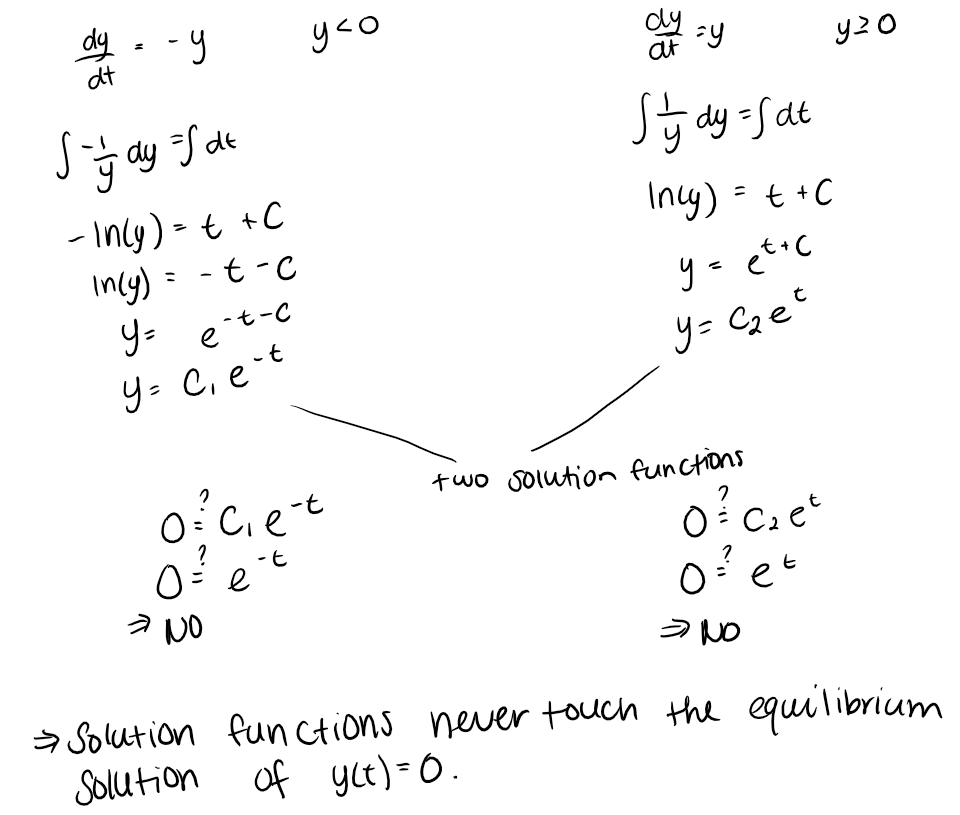 dy/dt = -y     y<0
∫ -1/y dy = ∫ dt
-ln(y) = t + C
ln(y) = -t - C
y = e^{-t-C}
y = C₁ e^{-t}
dy/dt = y     y≥0
∫ 1/y dy = ∫ dt
ln(y) = t + C
y = e^{t+C}
y = C₂ e^t
two solution functions
0 ≟ C₁ e^{-t}
0 ≟ e^{-t}
⇒ NO
0 ≟ C₂ e^t
0 ≟ e^t
⇒ NO
⇒ Solution functions never touch the equilibrium
Solution of y(t)=0.